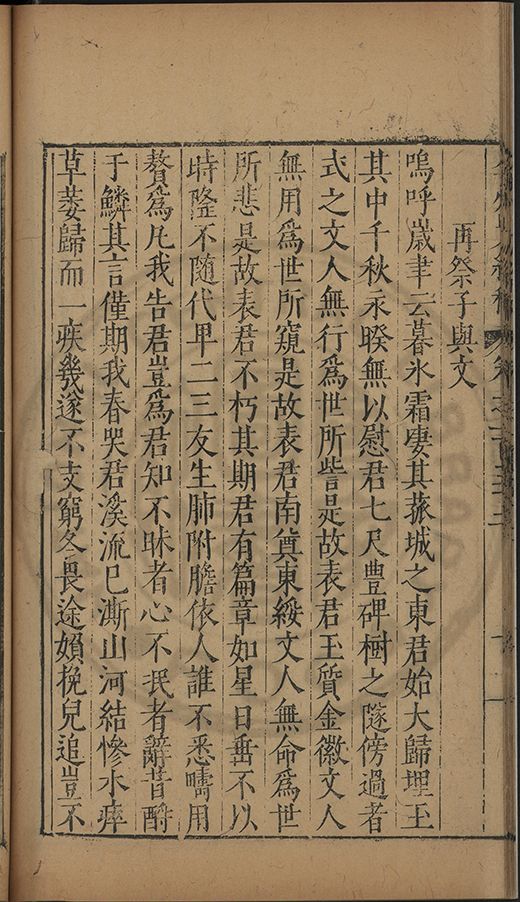 再祭子與文
嗚呼嵗聿云暮氷霜凄其菰城之東君始大歸埋玉
其中千秋永暌無以慰君七尺豊碑樹之隧傍過者
式之文人無行爲世所訾是故表君玉質金徽文人
無用爲世所窺是故表君南奠東綏文人無命爲世
所悲是故表君不朽其期君有篇章如星日埀不以
時隆不隨代卑二三友生肺附膽依人誰不悉疇用
贅爲凡我告君豈爲君知不昧者心不泯者辭昔酹
于鱗其言僅期我春哭君溪流巳澌山河結慘水瘁
草萎歸而一疾幾遂不支窮冬畏途嬪挽兒追豈不